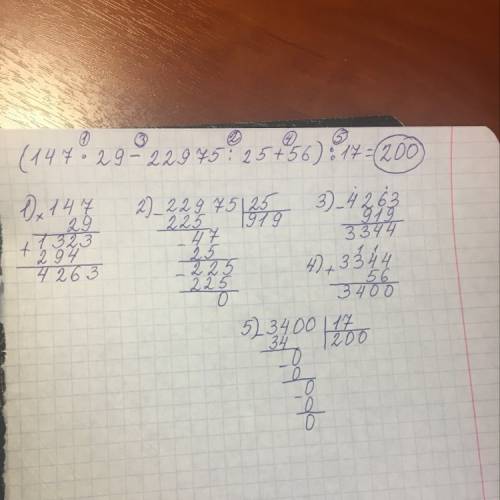 ① ③ ② ④ ⑤
(147 · 29 − 22975 : 25 + 56) : 17 = 200
1) × 147
29
+ 1323
294
4263
2) − 22975 | 25
225 | 919
− 47
25
− 225
225
0
3) − 4263
919
3344
4) + 3344
1 1
56
3400
5) − 3400 | 17
34 | 200
− 0
0
− 0
0
0